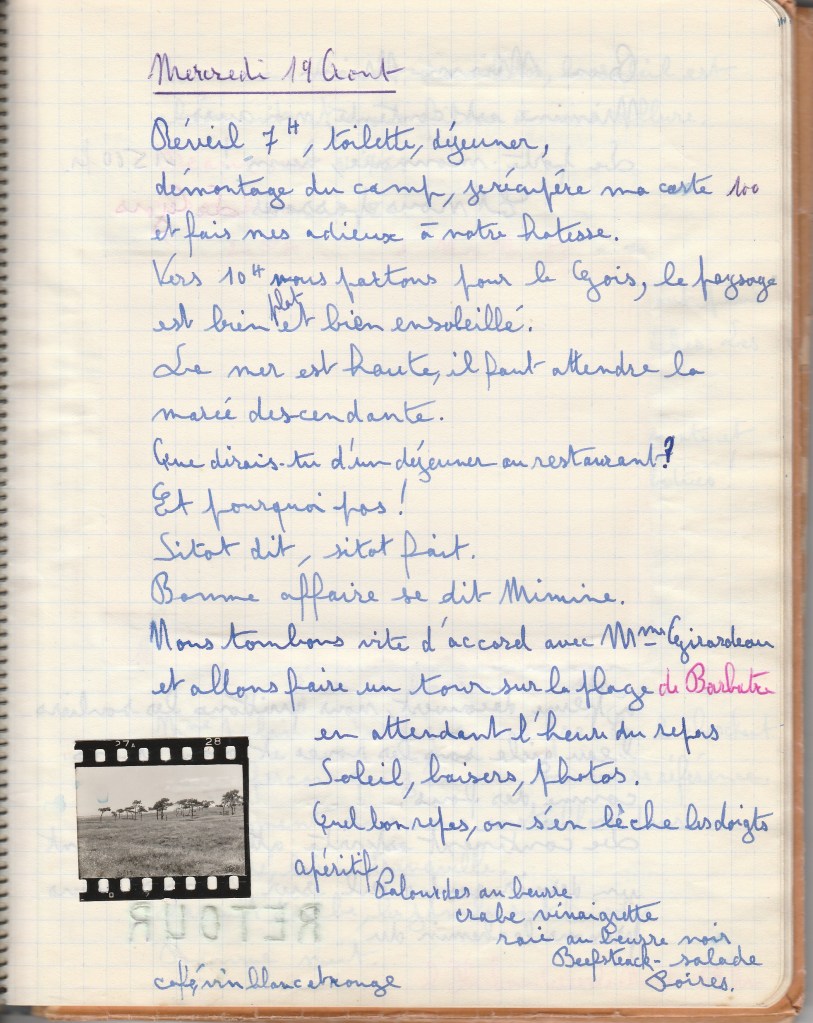 Mercredi 19 Aout
Réveil 7H, toilette, déjeuner,
démontage du camp, je récupére ma carte 100
et fais mes adieux à notre hotesse.
Vers 10H nous partons pour le Gois, le paysage
est bien plat et bien ensoleillé.
La mer est haute, il faut attendre la
marée descendante.
Que dirais-tu d'un déjeuner au restaurant?
Et pourquoi pas!
Sitot dit, sitot fait.
Bonne affaire se dit Mimine.
Nous tombons vite d'accord avec Mme Girardeau
et allons faire un tour sur la plage de Barbatre
en attendant l'heure du repas
Soleil, baisers, photos.
Quel bon repas, on s'en lèche les doigts
apéritif
Palourdes au beurre
crabe vinaigrette
raie au beurre noir
Beefsteack - salade
café, vin blanc et rouge Poires.
27A 28
RETOUR